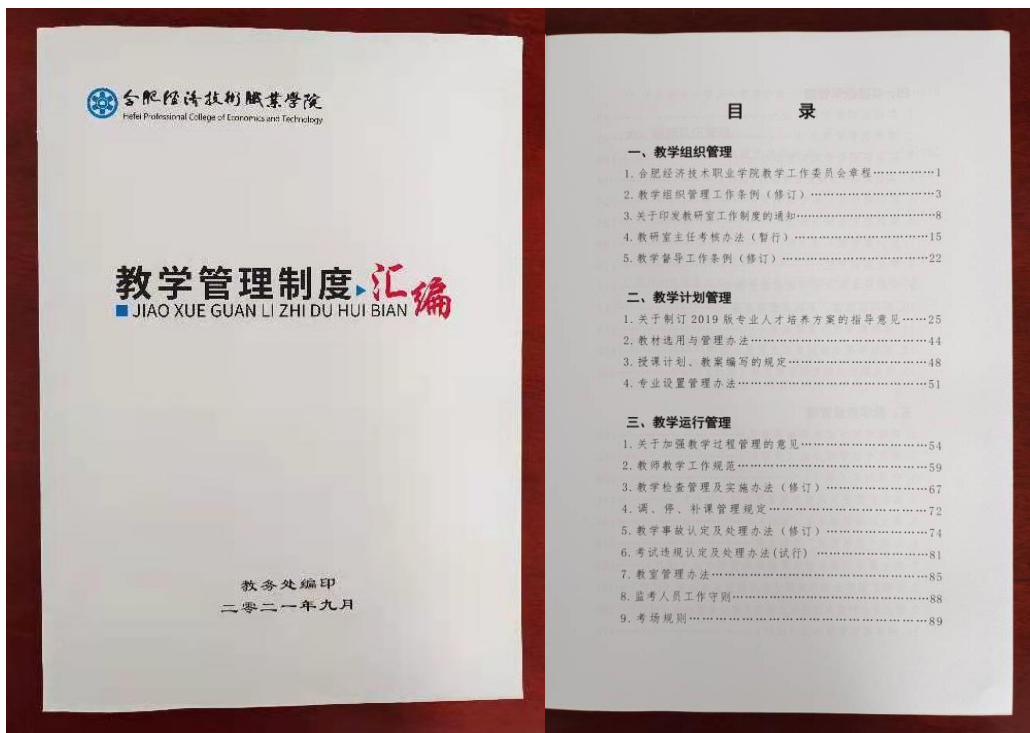 合肥经济技術職業學院
Hefei Professional College of Economics and Technology
教学管理制度汇编
JIAO XUE GUAN LI ZHI DU HUI BIAN
教务处编印
二零二一年九月
目 录
一、教学组织管理
1.合肥经济技术职业学院教学工作委员会章程……………1
2.教学组织管理工作条例（修订）……………………3
3.关于印发教研室工作制度的通知……………………8
4.教研室主任考核办法（暂行）……………………15
5.教学督导工作条例（修订）………………………22
二、教学计划管理
1.关于制订2019版专业人才培养方案的指导意见……25
2.教材选用与管理办法………………………………44
3.授课计划、教案编写的规定………………………48
4.专业设置管理办法…………………………………51
三、教学运行管理
1.关于加强教学过程管理的意见……………………54
2.教师教学工作规范…………………………………59
3.教学检查管理及实施办法（修订）………………67
4.调、停、补课管理规定……………………………72
5.教学事故认定及处理办法（修订）………………74
6.考试违规认定及处理办法(试行)…………………81
7.教室管理办法………………………………………85
8.监考人员工作守则…………………………………88
9.考场规则……………………………………………89